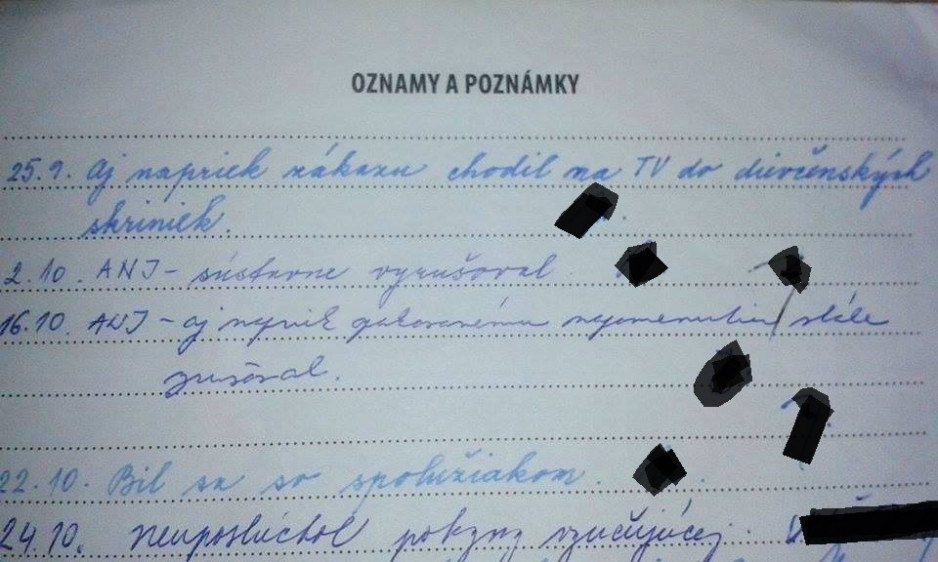 OZNAMY A POZNÁMKY
25.9. Aj napriek zákazu chodil na TV do dievčenských
skriniek.
2.10. ANJ - sústavne vyrušoval
16.10. ANJ - aj napriek opakovanému napomenutiu stále
vyrušoval.
22.10. Bil sa so spolužiakom.
24.10. Neuposlúchol pokyny vyučujúcej.